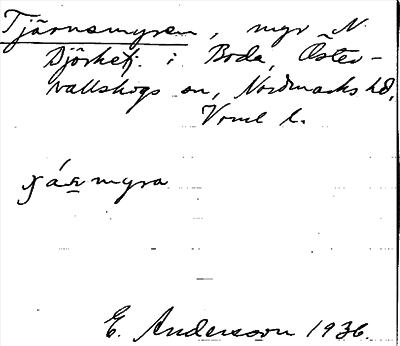 Tjärnsmyren, myr N.
Björket. i Boda, Öster-
vallskogs sn, Nordmarks hd,
Vrml l.
E. Andersson 1936.